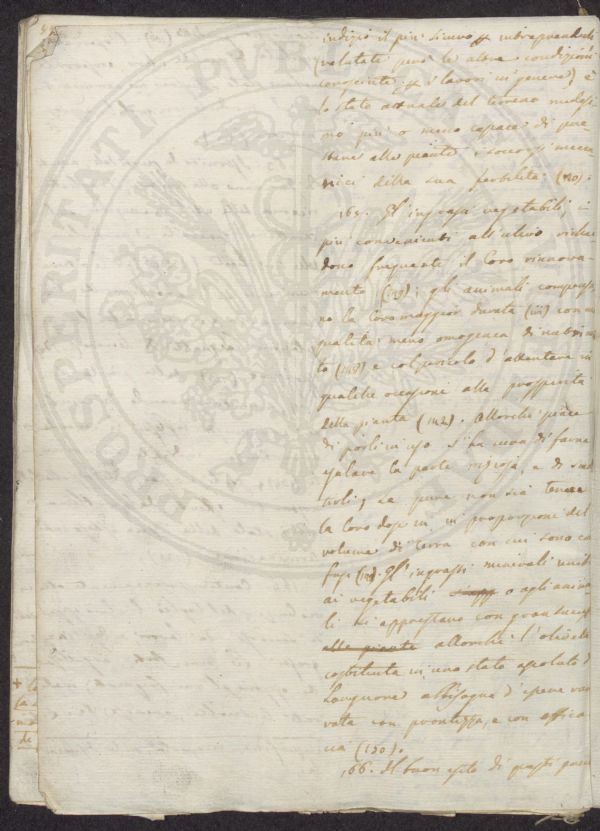 indizio il più sicuro per intraprenderli
(valutate però le altre condizioni
conosciute per i lavori in genere) è
lo stato attuale del terreno medesi
mo più o meno capace di pre
stare alle piante i soccorsi mecca
nici della sua fertilità (110).
165. Gl'ingrassi vegetabili, i
più convenienti all'ulivo richie
dono frequente il loro rinnova-
mento (119); gli animali compensa
no la loro maggior durata (111) con una
qualità meno omogenea di nutrimen
to (118) e col pericolo d'attentare in
qualche occasione alla prosperità
della pianta (142). Allorchè piace
di porli in uso si ha cura di farne
esalare la parte
se pure non si tenesse
la loro dose in proporzione del
volume di terra con cui sono con
fusi. Gl'ingrassi minerali uniti
ai vegetabili o agli anima
li si apprestano con gran successo
alle piante allorchè l'ulivo
costituita in uno stato assoluto di
languore abbisogna d'essere rav
vata con prontezza, e con effica
cia (120).
166. Il buon esito di questi
PROSPERITATI PUBLICAE